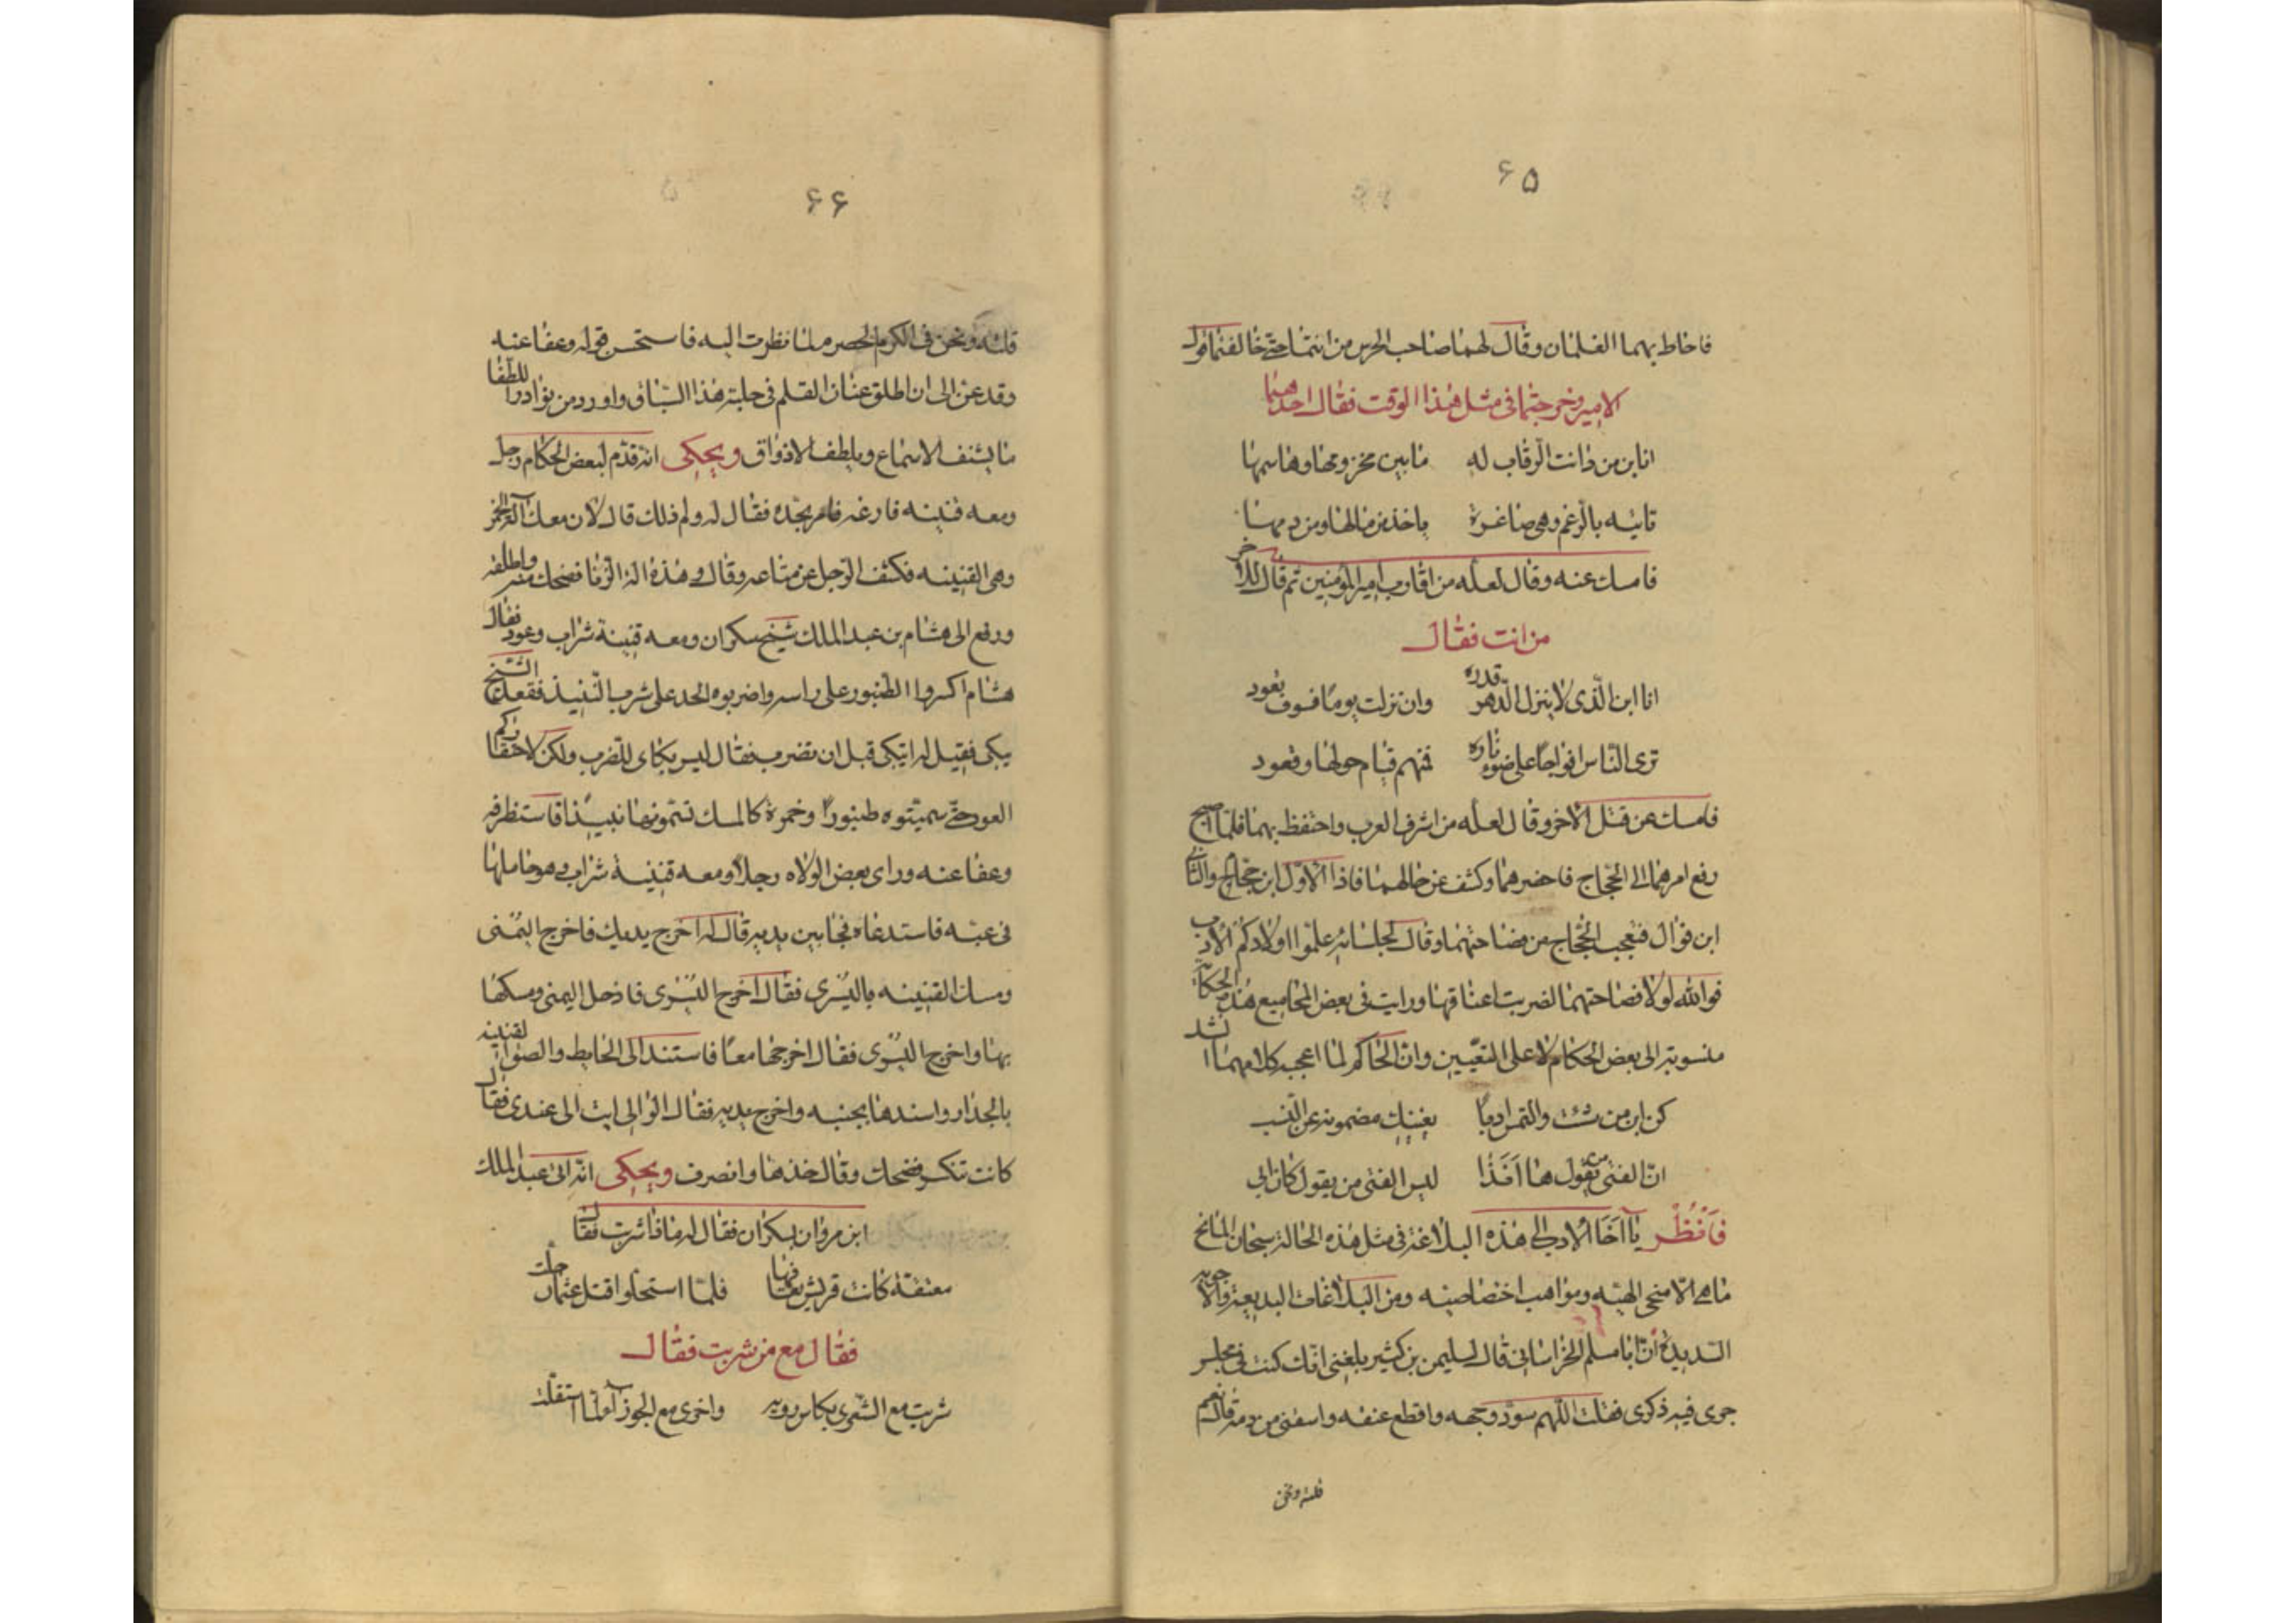 ۶۵
فاحاط بهما الغلمان وقال لهما صاحب الحرس من انتما حتى خالفتما قول
الامير وخرجتما فى مثل هذا الوقت فقال احدهما
انا ابن من دانت الرقاب له ما بين مخزومها وهاشمها
تاتيه بالرغم وهى صاغرة ياخذ من مالها ومن دمها
فامسك عنه وقال لعله من اقارب امير المؤمنين ثم قال للاخر
من انت فقال
انا ابن الّذى لا ينزل الدّهر قدره وان نزلت يوماً فسوف تعود
ترى النّاس افواجاً على ضوء ناره فمنهم قيام حولها وقعود
فامسك عن قتل الاخر وقال لعله من اشرف العرب واحتفظ بهما فلمّا اصبح
رفع امرهما الى الحجّاج فاحضرهما وكشف عن حالهما فاذا الاوّل ابن حجّام والثانى
ابن فوّال فتعجب الحجّاج من فصاحتهما وقال لجلسائه علّموا اولادكم الادب
فوالله لولا فصاحتهما لضربت اعناقهما ورايت فى بعض المجاميع هذه الحكاية
منسوبة الى بعض الحكام لا على التعيين وانّ الحاكم لما اعجبه كلامهما انشد
كن ابن من شئت والتمس ادباً يغنيك مضمونه عن النّسب
انّ الفتى من يقول ها اَنَذا ليس الفتى من يقول كان ابى
فَاَنْظُر يا اَخَا الادب الى هذه البلاغة فى مثل هذه الحالة سبحان المانح
ما هى الّا منحى الهيّه ومواهب اختصاصيه ومن البلاغات البديعة والاجوبة
السّديدة انّ ابا مسلم الخراسانى قال لسليمن بن كثير بلغنى انّك كنت فى مجلس
جرى فيه ذكرى فقلت اللّهم سوّد وجهه واقطع عنقه واسقنى من دمه قال نعم
قلته ونحن
۶۶
قلته ونحن فى الكرم الحصرم لما نظرت اليه فاستحسن قوله وعفا عنه
وقد عنّ الى ان اطلق عنان القلم فى حلبة هذا السّباق واورد من نوادر اللطفا
ما يشنف الاسماع ويلطف الاذواق ويحكى انّه قدّم لبعض الحكام رجل
ومعه قنينه فارغه فامر بحدّه فقال له ولم ذلك قال لان معك آلة الخمر
وهى القنينه فكشف الرّجل عن متاعه وقال وهذه آلة الزّنا فضحك منه واطلقه
ورفع الى هشام بن عبد الملك شيخ سكران ومعه قنينة شراب وعود فقال
هشام اكسروا الطنبور على راسه واضربوه الحد على شرب النّبيذ فقعد الشّيخ
يبكى فقيل له اتبكى قبل ان تضرب فقال ليس بكاى للضرب ولكن لاحتقاركم
العود حتّى سميّتوه طنبوراً وخمرة كالمسك تسمّونها نبيذاً فاستظرفه
وعفا عنه وراى بعض الولاه رجلاً ومعه قنينة شراب وهو حاملها
فى عبّه فاستدعاه فجا بين يديه قال له اخرج يديك فاخرج اليمنى
ومسك القنينه باليسرى فقال اخرج اليسرى فادخل اليمنى ومسكها
بها واخرج اليسرى فقال اخرجها معاً فاستند الى الحايط والصق القنينه
بالجدار واسندها بجنبه واخرج يديه فقال الوالى ايت الى عندى فقال
كانت تنكسر فضحك وقال خذها وانصرف ويحكى انّه اتى عبد الملك
ابن مروان بسكران فقال له ماذا شربت فقال
معتقة كانت قريش تعافها فلمّا استحلّوا قتل عثمان حلّت
فقال مع من شربت فقال
شربت مع الشّعرى بكاس رويه واخرى مع الجوزا لمّا استقلّت